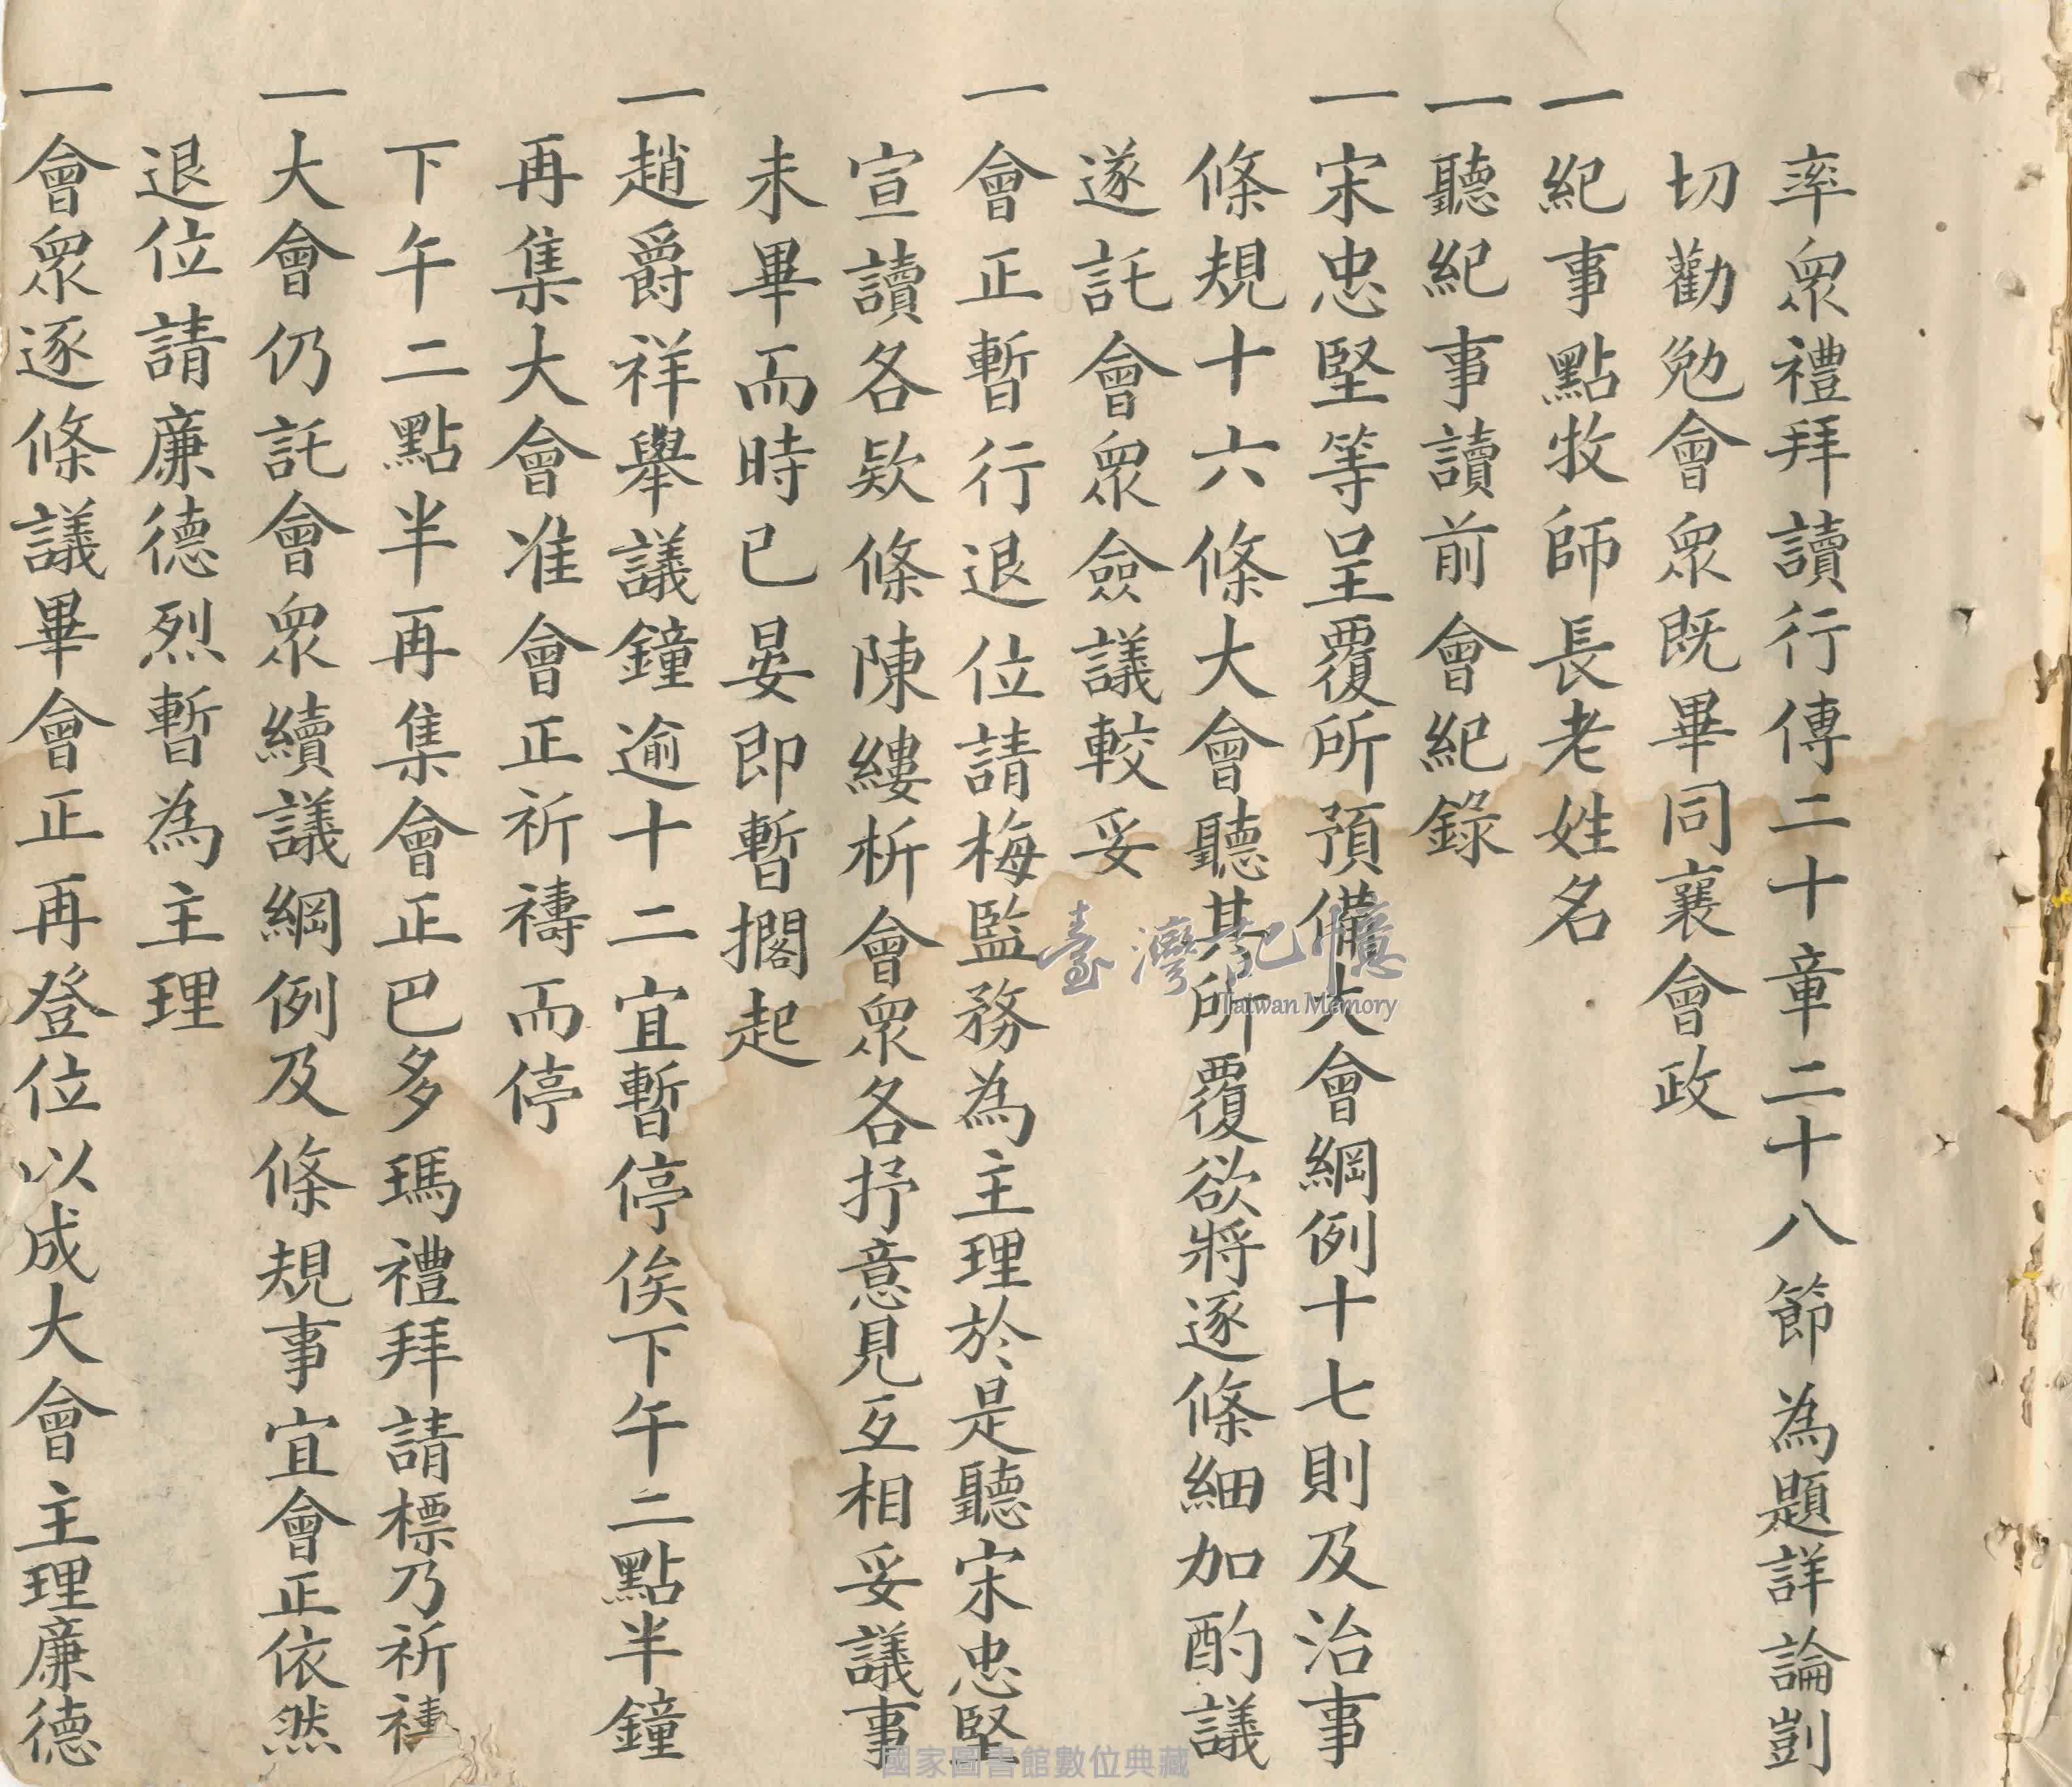 率眾禮拜讀行傳二十章二十八節為題詳論剴
切勸勉會眾既畢同襄會政
一紀事點牧師長老姓名
一聽紀事讀前會紀錄
一宋忠堅等呈覆所預備大會綱例十七則及治事
條規十六條大會聽其所覆欲將逐條細加酌議
遂託會眾僉議較妥
一會正暫行退位請梅監務為主理於是聽宋忠堅
宣讀各欵條陳縷析會眾各抒意見互相妥議事
未畢而時已晏即暫擱起
一趙爵祥舉議鐘逾十二宜暫停俟下午二點半鐘
再集大會准會正祈禱而停
下午二點半再集會正巴多瑪禮拜請標乃祈禱
一大會仍託會眾續議綱例及條規事宜會正依然
退位請廉德烈暫為主理
一會眾逐條議畢會正再登位以成大會主理廉德
臺灣記憶
Taiwan Memory
國家圖書館數位典藏